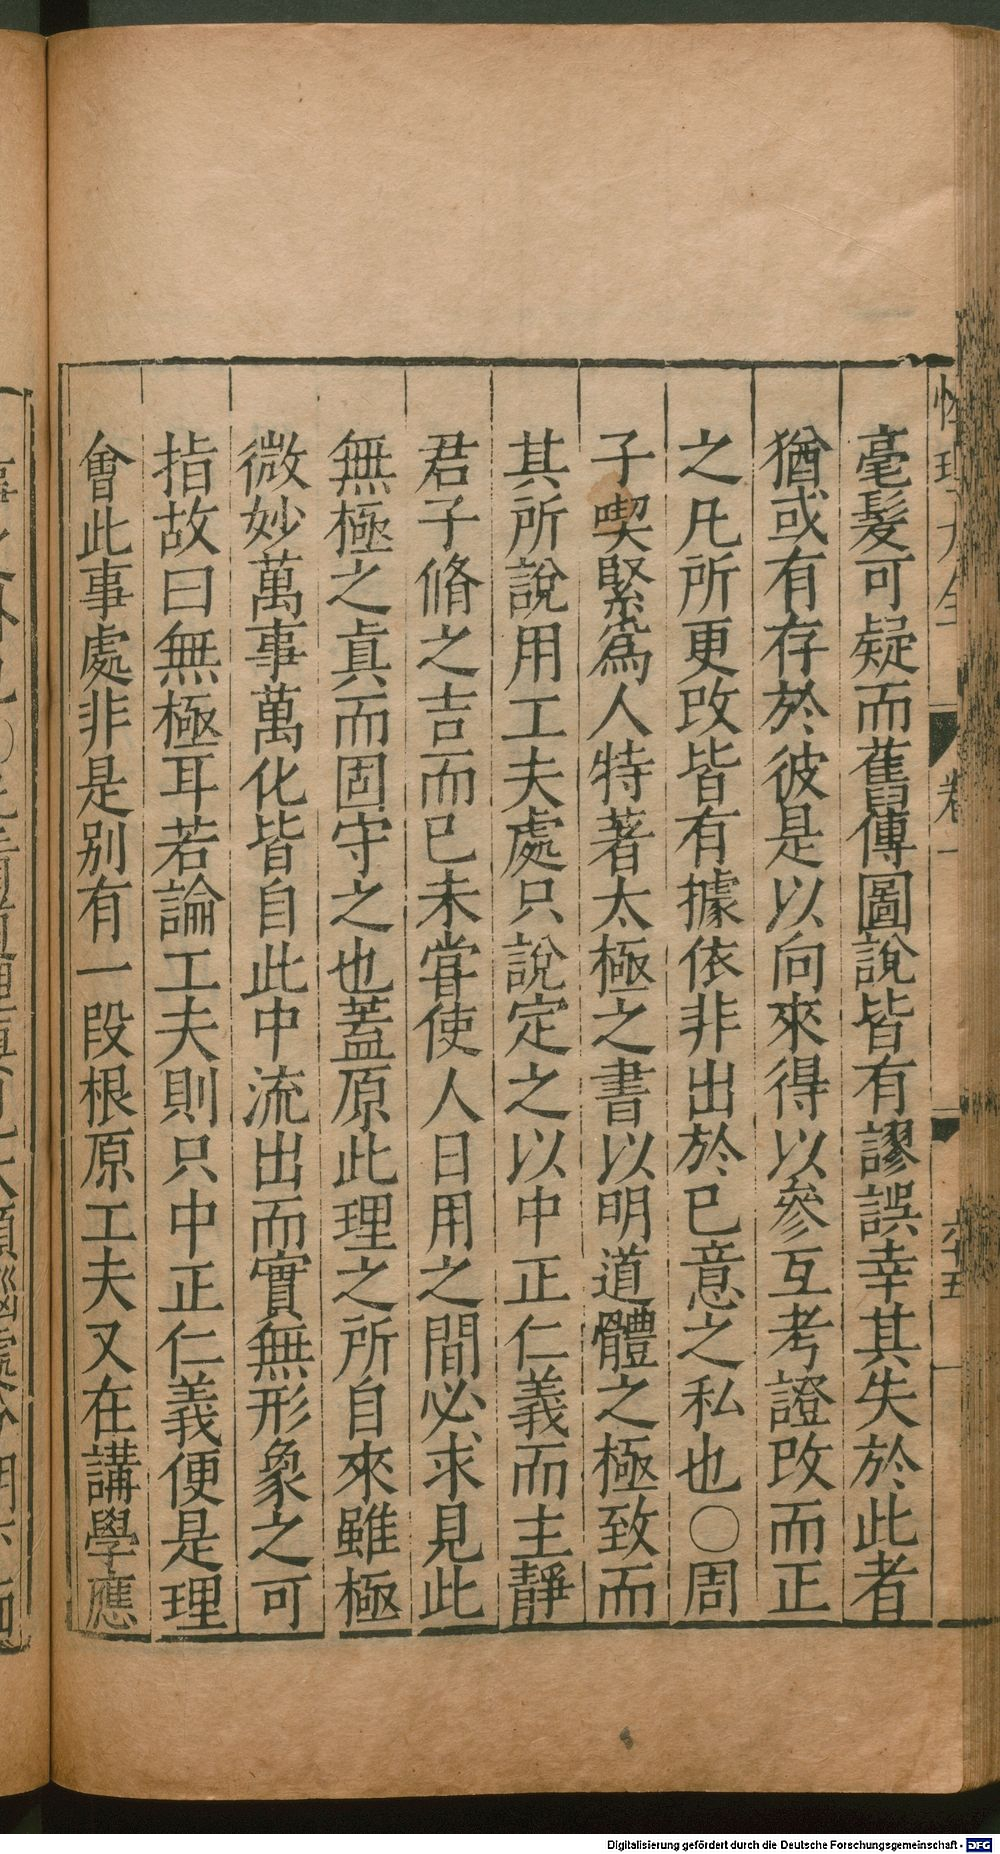 毫髮可疑而舊傳圖說皆有謬誤幸其失於此者
猶或有存於彼是以向來得以參互考證改而正
之凡所更改皆有據依非出於已意之私也○周
子喫緊爲人特著太極之書以明道體之極致而
其所說用工夫處只說定之以中正仁義而主靜
君子脩之吉而已未甞使人日用之間必求見此
無極之眞而固守之也蓋原此理之所自來雖極
微妙萬事萬化皆自此中流出而實無形象之可
指故曰無極耳若論工夫則只中正仁義便是理
會此事處非是別有一段根原工夫又在講學應
卷一
六十五
Digitalisierung gefördert durch die Deutsche Forschungsgemeinschaft - DFG